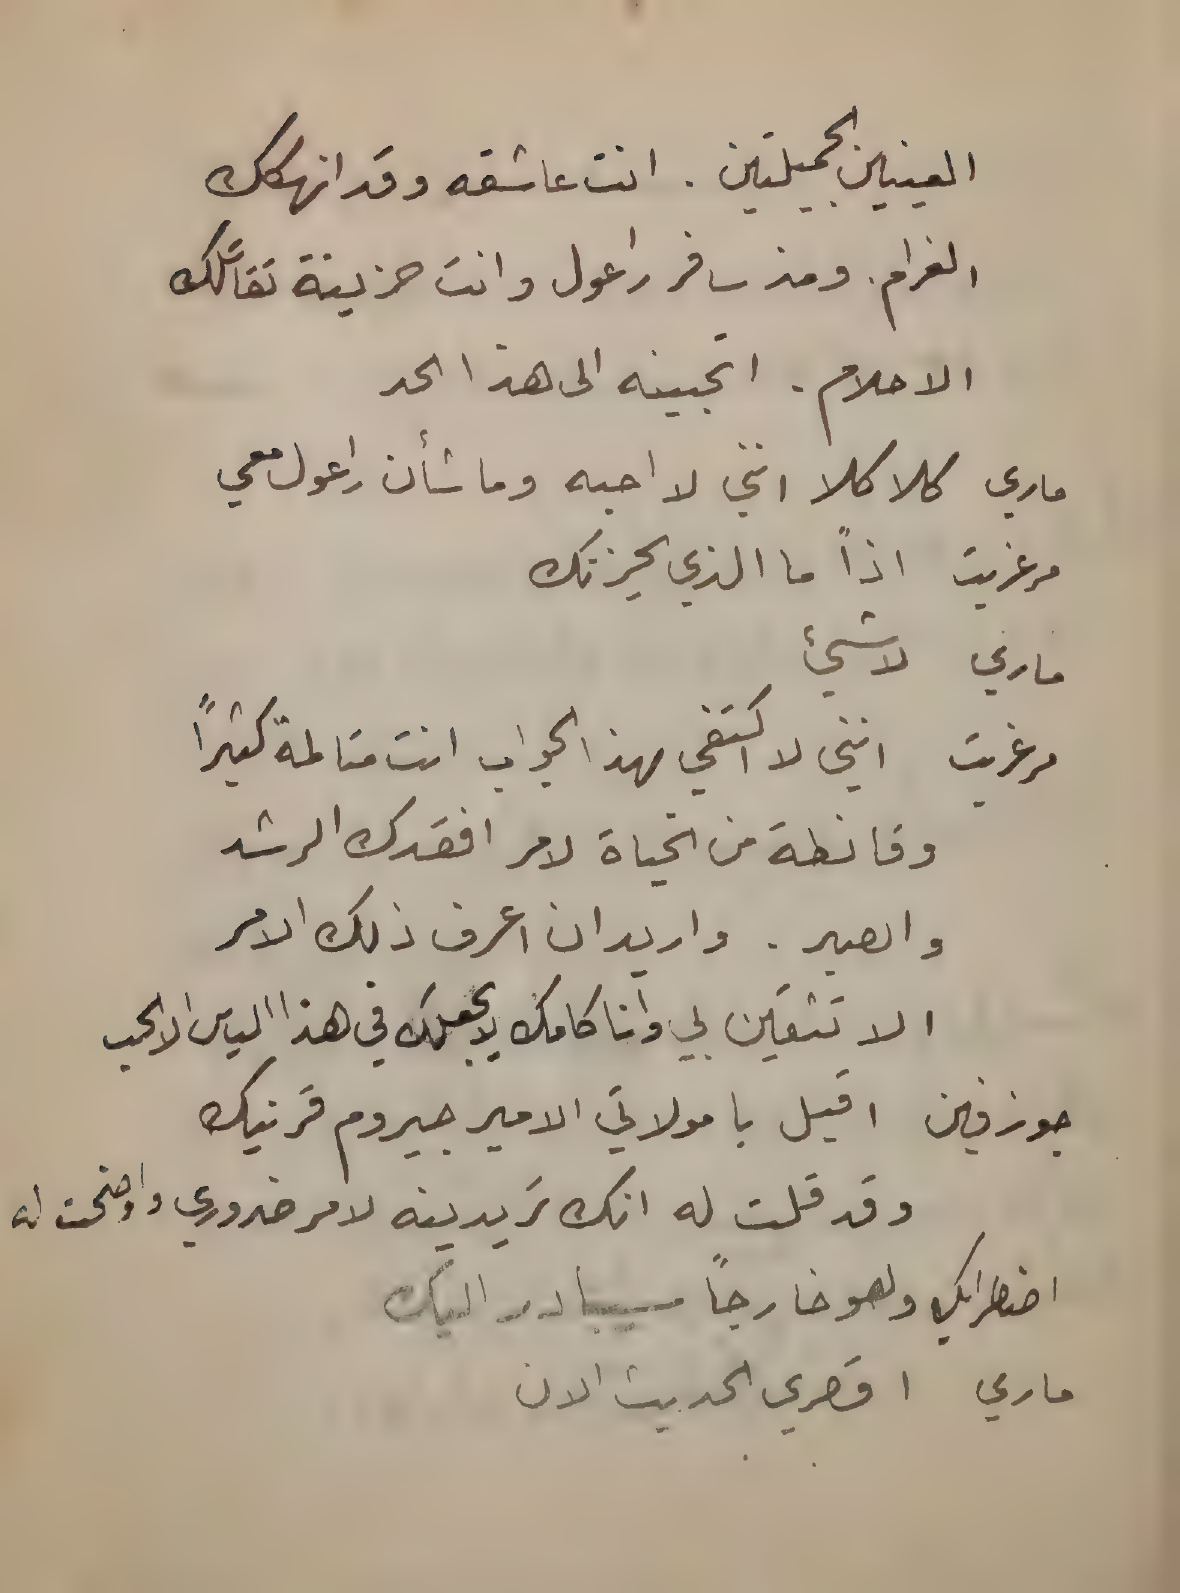 العينين الجميلتين . انت عاشقه وقد انهكك
الغرام . ومذ سافر راعول وانت حزينة تقاتلك
الاحلام . اتحبينه الى هذا الحد
ماري كلا كلا انني لا احبه وما شأن راعول معي
مرغريت اذاً ما الذي يحزنك
ماري لا شيئ
مرغريت انني لا اكتفي بهذا الجواب انت متالمة كثيراً
وقانطة من الحياة لامر افقدك الرشد
والصبر . واريد ان اعرف ذلك الامر
الا تثقين بي وانا كامك لا يجعلك في هذا الياس الا الحب
جوزفين اقبل يا مولاتي الامير جيروم قرنيك
وقد قلت له انك تريدينه لامر ضروري واوضحت له
اضطرابك وهو خارجاً سيبادر اليك
ماري اقصري الحديث الان